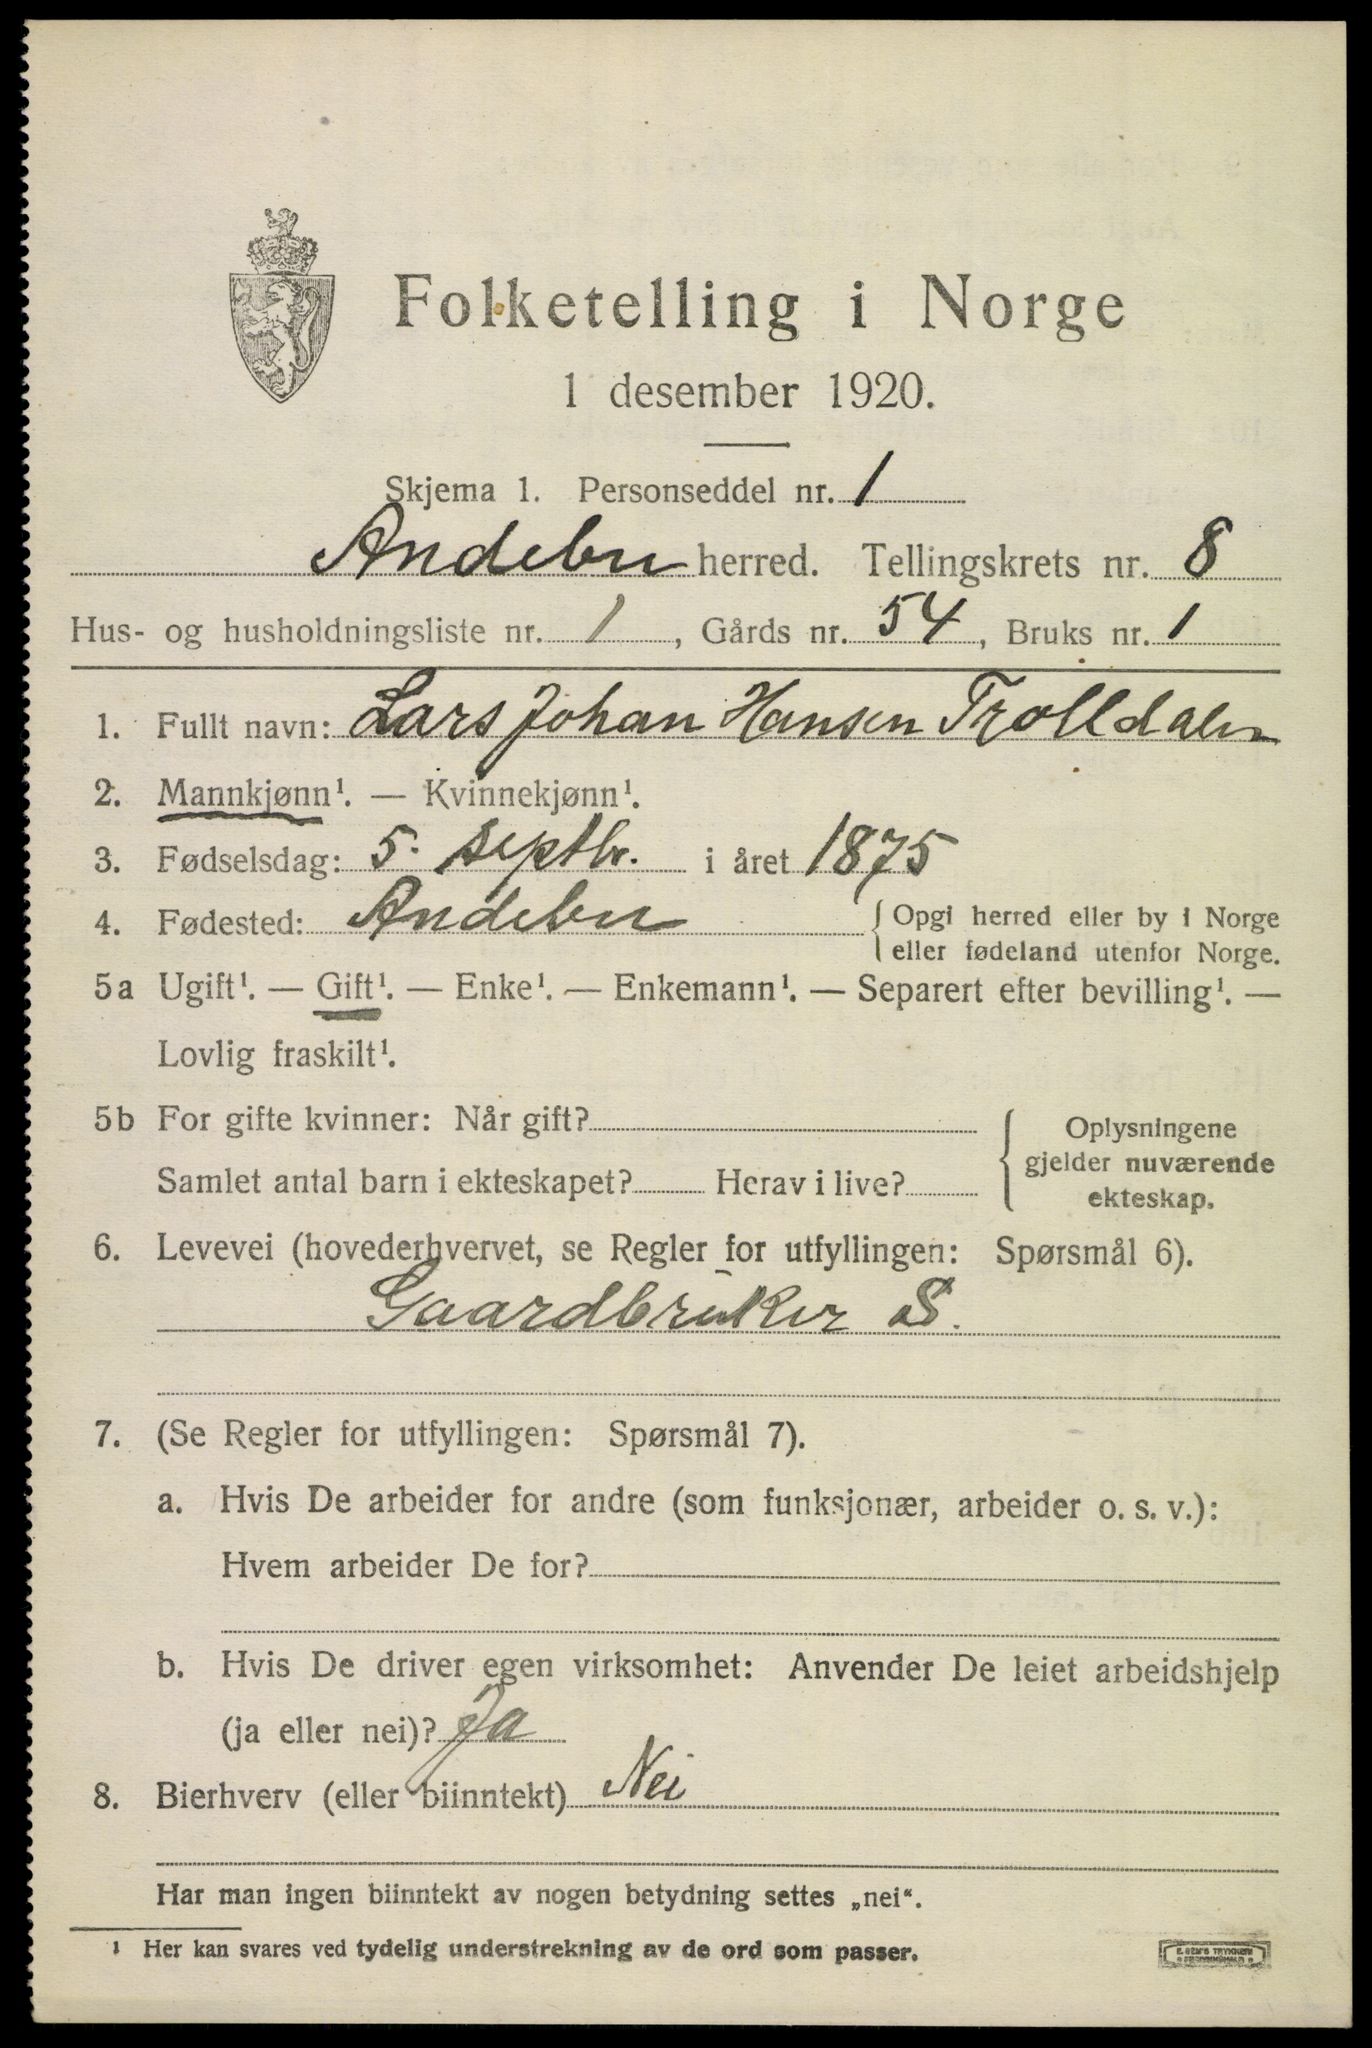 Folketelling i Norge
1 desember 1920.
Skjema 1. Personseddel nr. 1
Andebu herred. Tellingskrets nr. 8
Hus- og husholdningsliste nr. 1, Gårds nr. 54, Bruks nr. 1
1. Fullt navn: Lars Johan Hansen Trolldalen
2. Mannkjønn¹. — Kvinnekjønn¹.
3. Fødselsdag: 5. septbr. i året 1875
4. Fødested: Andebu {Opgi herred eller by i Norge
eller fødeland utenfor Norge.
5a Ugift¹. — Gift¹. — Enke¹. — Enkemann¹. — Separert efter bevilling¹. —
Lovlig fraskilt¹.
5b For gifte kvinner: Når gift?
Samlet antal barn i ekteskapet? Herav i live?
Oplysningene
gjelder nuværende
ekteskap.
6. Levevei (hovederhvervet, se Regler for utfyllingen: Spørsmål 6).
Gaardbruker S.
7. (Se Regler for utfyllingen: Spørsmål 7).
a. Hvis De arbeider for andre (som funksjonær, arbeider o. s. v.):
Hvem arbeider De for?
b. Hvis De driver egen virksomhet: Anvender De leiet arbeidshjelp
(ja eller nei)? Ja
8. Bierhverv (eller biinntekt) Nei
Har man ingen biinntekt av nogen betydning settes „nei“.
¹ Her kan svares ved tydelig understrekning av de ord som passer.